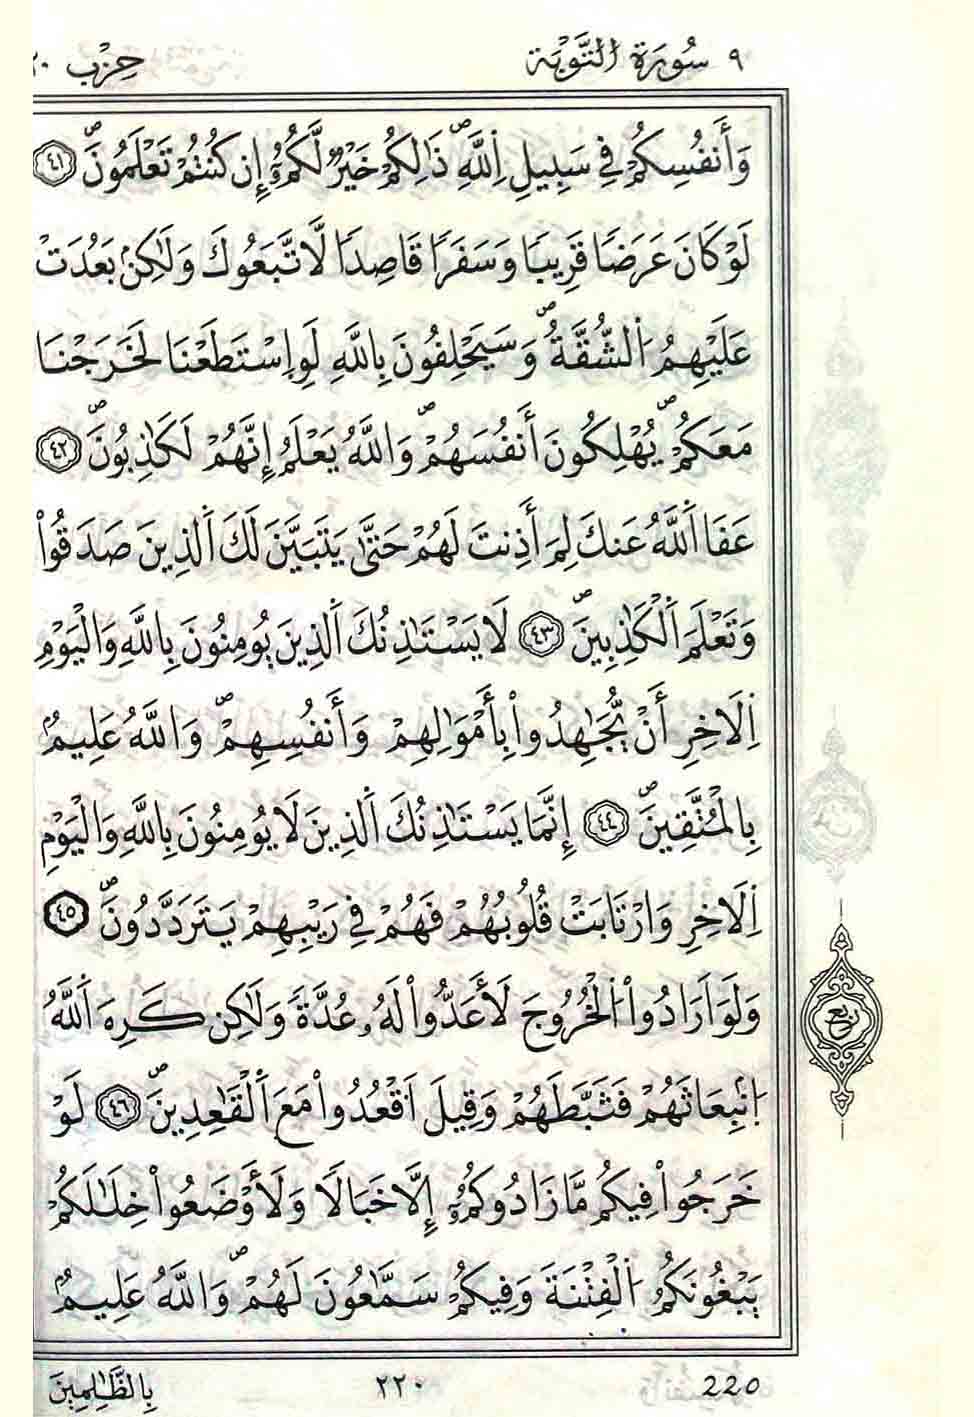 ٩ سُورَةُ التَّوْبَة
حِزْب ٢٠
وَأَنفُسِكُمْ فِي سَبِيلِ اِ۬للَّهِۖ ذَٰلِكُمْ خَيْرٞ لَّكُمُۥٓ إِن كُنتُمْ تَعْلَمُونَۖ ٤١
لَوْ كَانَ عَرَضاٗ قَرِيباٗ وَسَفَراٗ قَاصِداٗ لَّاتَّبَعُوكَ وَلَٰكِنۢ بَعُدَتْ
عَلَيْهِمُ اُ۬لشُّقَّةُۖ وَسَيَحْلِفُونَ بِاللَّهِ لَوِ اِ۪سْتَطَعْنَا لَخَرَجْنَا
مَعَكُمْۖ يُهْلِكُونَ أَنفُسَهُمْۖ وَاللَّهُ يَعْلَمُ إِنَّهُمْ لَكَٰذِبُونَۖ ٤٢
عَفَا اَ۬للَّهُ عَنكَ لِمَ أَذِنتَ لَهُمْ حَتَّىٰ يَتَبَيَّنَ لَكَ اَ۬لذِينَ صَدَقُواْ
وَتَعْلَمَ اَ۬لْكَٰذِبِينَۖ ٤٣ لَا يَسْتَٰذِنُكَ اَ۬لذِينَ يُومِنُونَ بِاللَّهِ وَالْيَوْمِ
اِ۬لَاخِرِ أَنْ يُّجَٰهِدُواْ بِأَمْوَٰلِهِمْ وَأَنفُسِهِمْۖ وَاللَّهُ عَلِيمُۢ
بِالْمُتَّقِينَۖ ٤٤ إِنَّمَا يَسْتَٰذِنُكَ اَ۬لذِينَ لَا يُومِنُونَ بِاللَّهِ وَالْيَوْمِ
اِ۬لَاخِرِ وَارْتَابَتْ قُلُوبُهُمْ فَهُمْ فِي رَيْبِهِمْ يَتَرَدَّدُونَۖ ٤٥
وَلَوَ اَرَادُواْ اُ۬لْخُرُوجَ لَأَعَدُّواْ لَهُۥ عُدَّةٗ وَلَٰكِن كَرِهَ اَ۬للَّهُ
اُ۪نۢبِعَاثَهُمْ فَثَبَّطَهُمْ وَقِيلَ اَ۟قْعُدُواْ مَعَ اَ۬لْقَٰعِدِينَۖ ٤٦ لَوْ
خَرَجُواْ فِيكُم مَّا زَادُوكُمُۥٓ إِلَّا خَبَالاٗ وَلَأَوْضَعُواْ خِلَٰلَكُمْ
يَبْغُونَكُمُ اُ۬لْفِتْنَةَ وَفِيكُمْ سَمَّٰعُونَ لَهُمْۖ وَاللَّهُ عَلِيمُۢ
رُبُع
بِالظَّٰلِمِينَ
٢٢٠
220